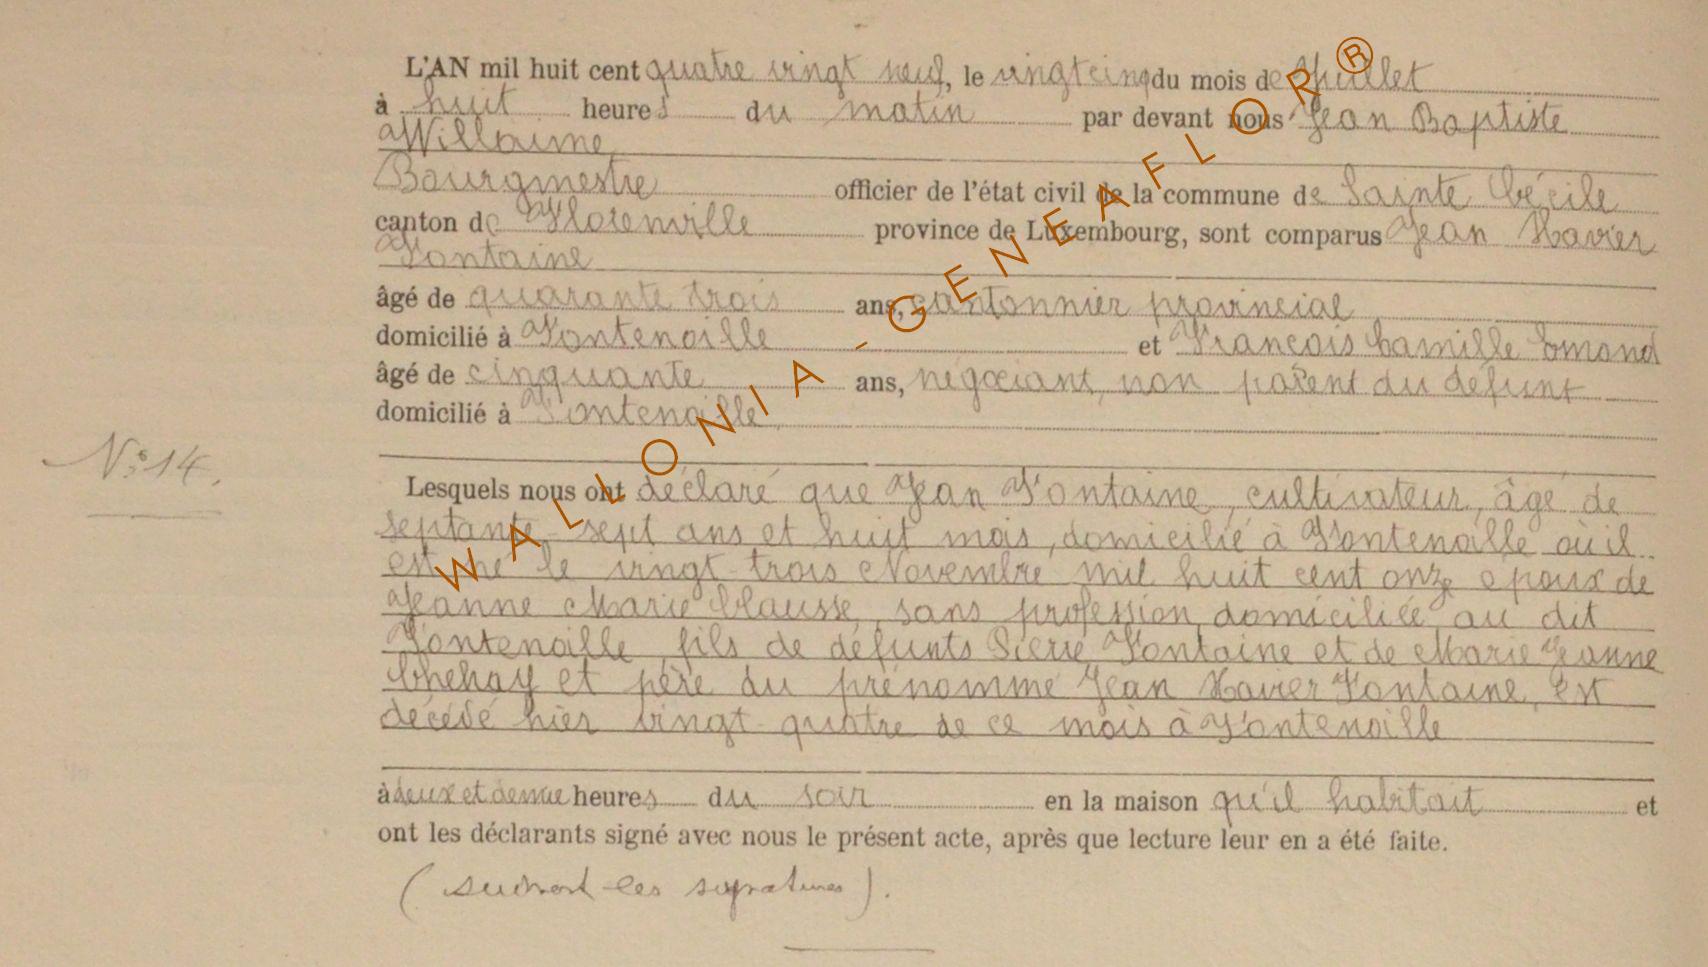 L'AN mil huit cent quatre vingt neuf, le vingtcinq du mois de Juillet
à huit heures du matin par devant nous Jean Baptiste
Willaime
Bourgmestre officier de l'état civil de la commune de Sainte Cécile
canton de Florenville province de Luxembourg, sont comparus Jean Xavier
Fontaine
âgé de quarante trois ans, cantonnier provincial
domicilié à Fontenoille et Francois Camille Emond
âgé de cinquante ans, négociant, non parent du défunt
domicilié à Fontenoille
N° 14.
Lesquels nous ont déclaré que Jean Fontaine, cultivateur, âgé de
septante-sept ans et huit mois, domicilié à Fontenoille où il
est né le vingt-trois Novembre mil huit cent onze époux de
Jeanne Marie Clausse, sans profession, domiciliée au dit
Fontenoille, fils de défunts Pierre Fontaine et de Marie Jeanne
Chehay et père du prénommé Jean Xavier Fontaine, est
décédé hier vingt-quatre de ce mois à Fontenoille
à deux et demie heures du soir en la maison qu'il habitait et
ont les déclarants signé avec nous le présent acte, après que lecture leur en a été faite.
(suivent les signatures).
WALLONIA-GENEAFLOR®